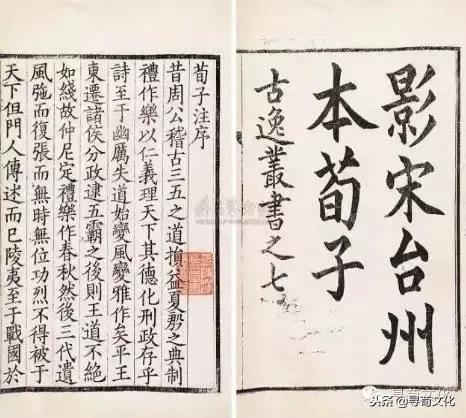 影宋台州
本荀子
古逸叢書之七
荀子注序
昔周公稽古三五之道損益夏殷之典制
禮作樂以仁義理天下其德化刑政存乎
詩至于幽厲失道始變風變雅作矣平王
東遷諸侯分政逮五霸之後則王道不絕
如綫故仲尼定禮樂作春秋然後三代遺
風弛而復張而無時無位功烈不得被于
天下但門人傳述而已陵夷至于戰國於
头条@寻奇文化